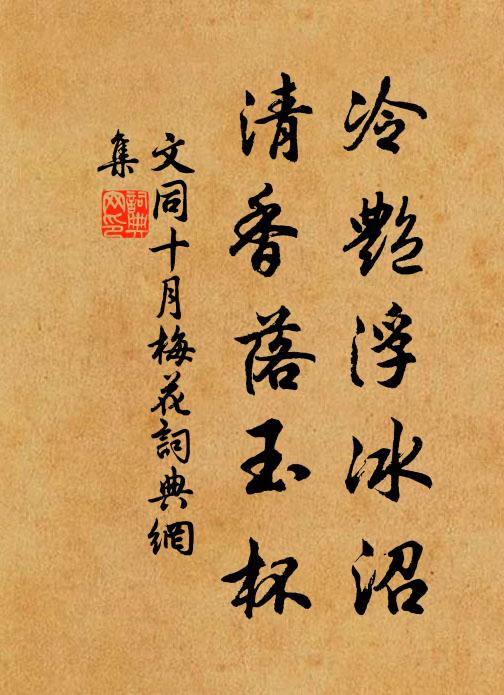 冷艷浮冰沼
清香落玉杯
文同十月梅花詞典網
集
詞典
网印